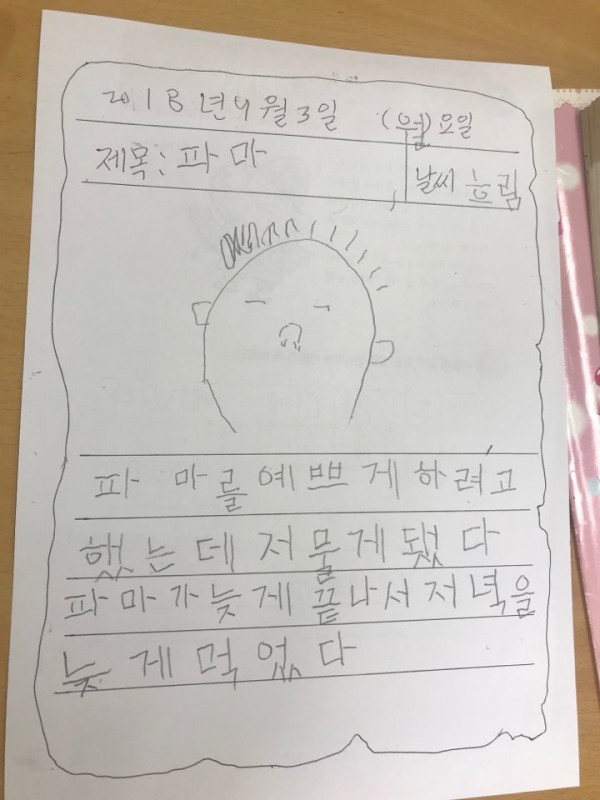 2018년 9월 3일 (월)요일
제목: 파마
날씨 흐림
파마를 예쁘게하려고
했는데 저물게 됐다
파마가 늦게 끝나서 저녁을
늦게 먹었다